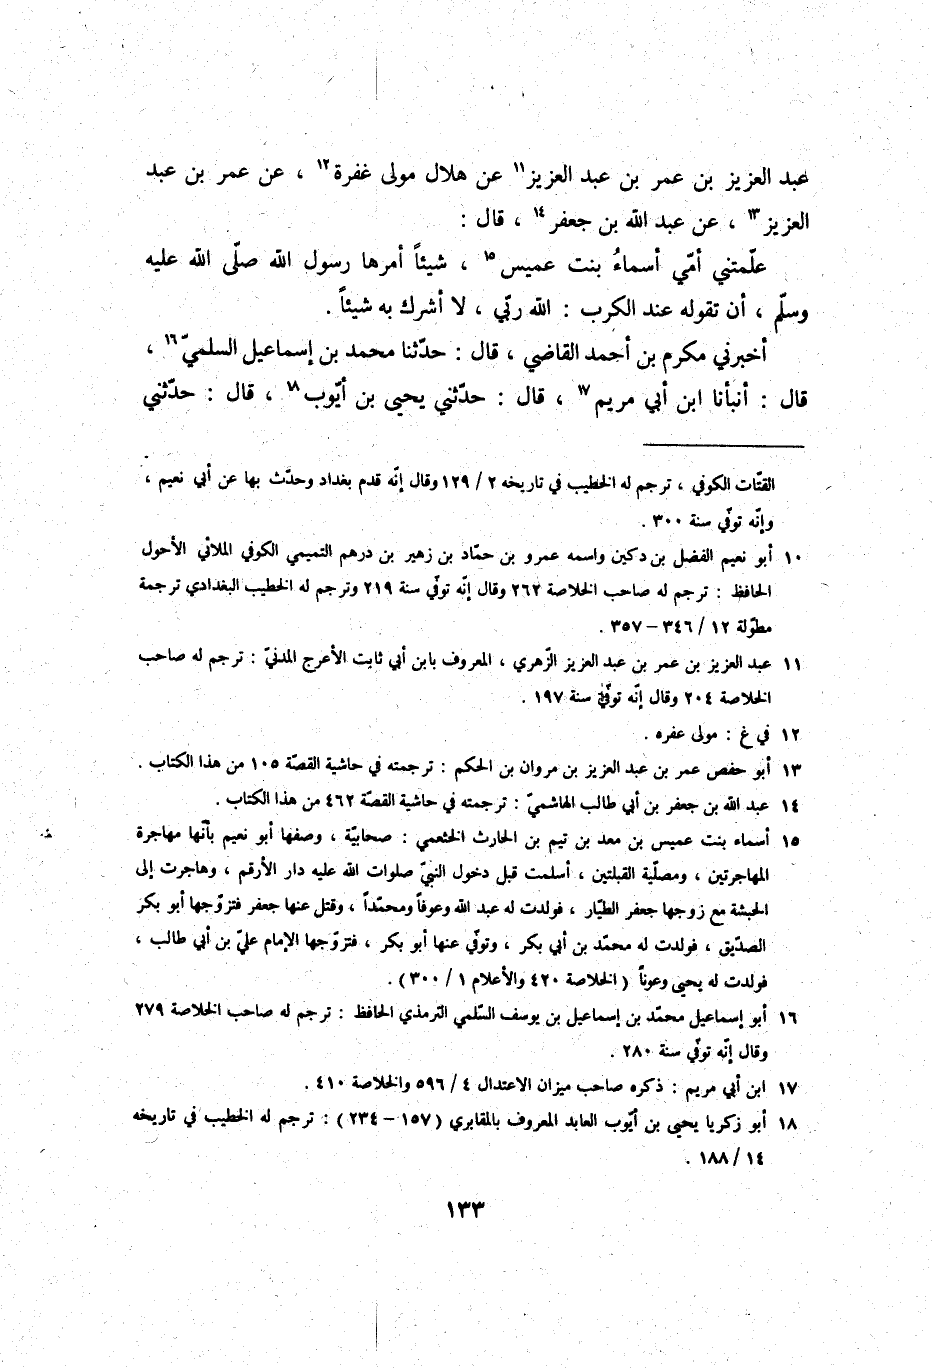 عبد العزيز بن عمر بن عبد العزيز١١ عن هلال مولى غفرة١٢ ، عن عمر بن عبد
العزيز١٣ ، عن عبد الله بن جعفر١٤ ، قال :
علّمتني أمّي أسماءُ بنت عميس١٥ ، شيئاً أمرها رسول الله صلّى الله عليه
وسلّم ، أن تقوله عند الكرب : الله ربّي ، لا أشرك به شيئاً .
أخبرني مكرم بن أحمد القاضي ، قال : حدّثنا محمد بن إسماعيل السلميّ١٦ ،
قال : أنبأنا ابن أبي مريم١٧ ، قال : حدّثني يحيى بن أيّوب١٨ ، قال : حدّثني
القتّات الكوفي ، ترجم له الخطيب في تاريخه ٢ / ١٢٩ وقال إنّه قدم بغداد وحدّث بها عن أبي نعيم ،
وإنّه توفّي سنة ٣٠٠ .
١٠ أبو نعيم الفضل بن دكين واسمه عمرو بن حمّاد بن زهير بن درهم التميمي الكوفي الملائي الأحول
الحافظ : ترجم له صاحب الخلاصة ٢٦٢ وقال إنّه توفّي سنة ٢١٩ وترجم له الخطيب البغدادي ترجمة
مطوّلة ١٢ / ٣٤٦ – ٣٥٧ .
١١ عبد العزيز بن عمر بن عبد العزيز الزّهري ، المعروف بابن أبي ثابت الأعرج المدنيّ : ترجم له صاحب
الخلاصة ٢٠٤ وقال إنّه توفّي سنة ١٩٧ .
١٢ في غ : مولى عفره .
١٣ أبو حفص عمر بن عبد العزيز بن مروان بن الحكم : ترجمته في حاشية القصّة ١٠٥ من هذا الكتاب .
١٤ عبد الله بن جعفر بن أبي طالب الهاشميّ : ترجمته في حاشية القصّة ٤٦٢ من هذا الكتاب .
١٥ أسماء بنت عميس بن معد بن تيم بن الحارث الخثعمي : صحابيّة ، وصفها أبو نعيم بأنّها مهاجرة
المهاجرتين ، ومصلّية القبلتين ، أسلمت قبل دخول النبيّ صلوات الله عليه دار الأرقم ، وهاجرت إلى
الحبشة مع زوجها جعفر الطيّار ، فولدت له عبد الله وعوفاً ومحمّداً ، وقتل عنها جعفر فتزوّجها أبو بكر
الصدّيق ، فولدت له محمّد بن أبي بكر ، وتوفّي عنها أبو بكر ، فتزوّجها الإمام عليّ بن أبي طالب ،
فولدت له يحيى وعوناً ( الخلاصة ٤٢٠ والأعلام ١ / ٣٠٠ ) .
١٦ أبو إسماعيل محمّد بن إسماعيل بن يوسف السّلمي الترمذي الحافظ : ترجم له صاحب الخلاصة ٢٧٩
وقال إنّه توفّي سنة ٢٨٠ .
١٧ ابن أبي مريم : ذكره صاحب ميزان الاعتدال ٤ / ٥٩٦ والخلاصة ٤١٠ .
١٨ أبو زكريا يحيى بن أيّوب العابد المعروف بالمقابري ( ١٥٧ – ٢٣٤ ) : ترجم له الخطيب في تاريخه
١٤ / ١٨٨ .
١٣٣